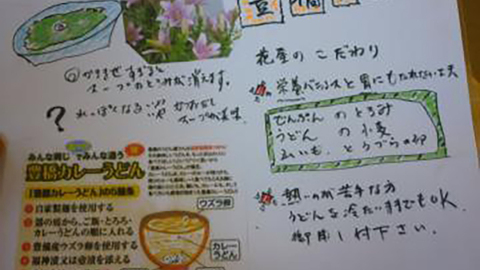 豊橋
◎かきまぜすぎると
スープのとろみが消えます。
? 水っぽくなる…
かつおだし
スープが美味。
みんな同じでみんな違う
豊橋カレーうどん
「豊橋カレーうどん」の5箇条
1 自家製麺を使用する
2 器の底から、ご飯・とろろ・
カレーうどんの順に入れる
3 豊橋産ウズラ卵を使用する
4 福神漬又は壺漬を添える
ウズラ卵
カレー
うどん
花屋のこだわり
栄養バランスと胃にもたれない工夫
でんぷんのとろみ
うどんの小麦
とうづらの卵
熱いのが苦手な方
うどんを冷たいままでもOK
御用し付下さい。